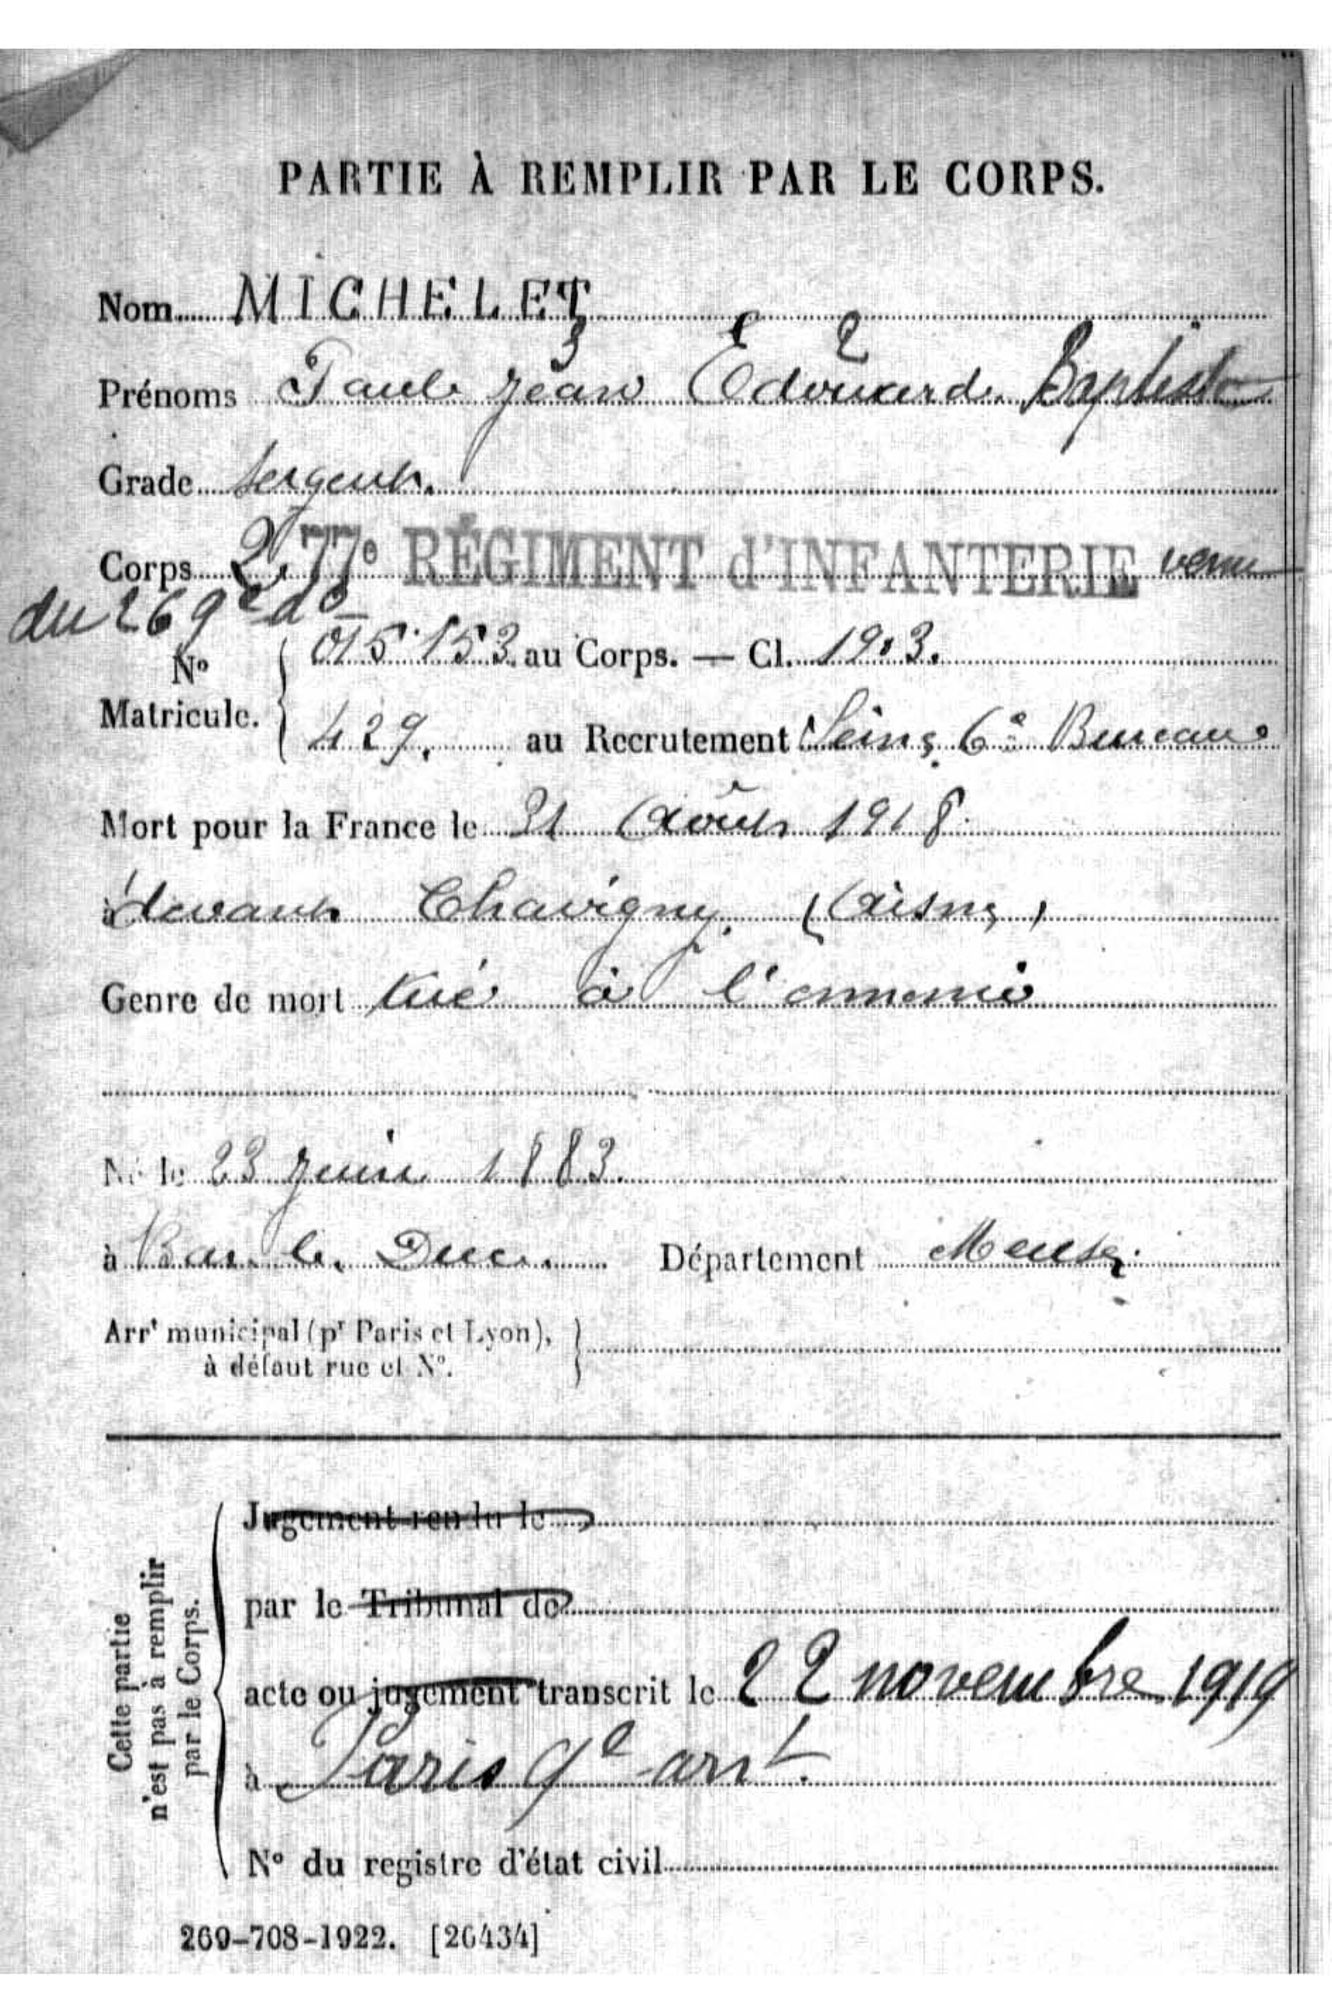 PARTIE À REMPLIR PAR LE CORPS.
Nom MICHELET
3 e 2
Prénoms Paul Jean Edouard. Baptiste
Grade Sergent.
Corps 277e RÉGIMENT d'INFANTERIE venu
du 269e do
No Matricule. { 015153. au Corps. — Cl. 1903.
429. au Recrutement Seine 6e Bureau.
Mort pour la France le 31 Août 1918.
à devant Chavigny. (Aisne)
Genre de mort tué à l'ennemi
Né le 23 Juin 1883.
à Bar le Duc. Département Meuse.
Arrt municipal (pr Paris et Lyon),
à défaut rue et No.
Cette partie
n'est pas à remplir
par le Corps.
Jugement rendu le
par le Tribunal de
acte ou jugement transcrit le 22 novembre 1919
à Paris 9e arrt.
No du registre d'état civil
269-708-1922. [26434]